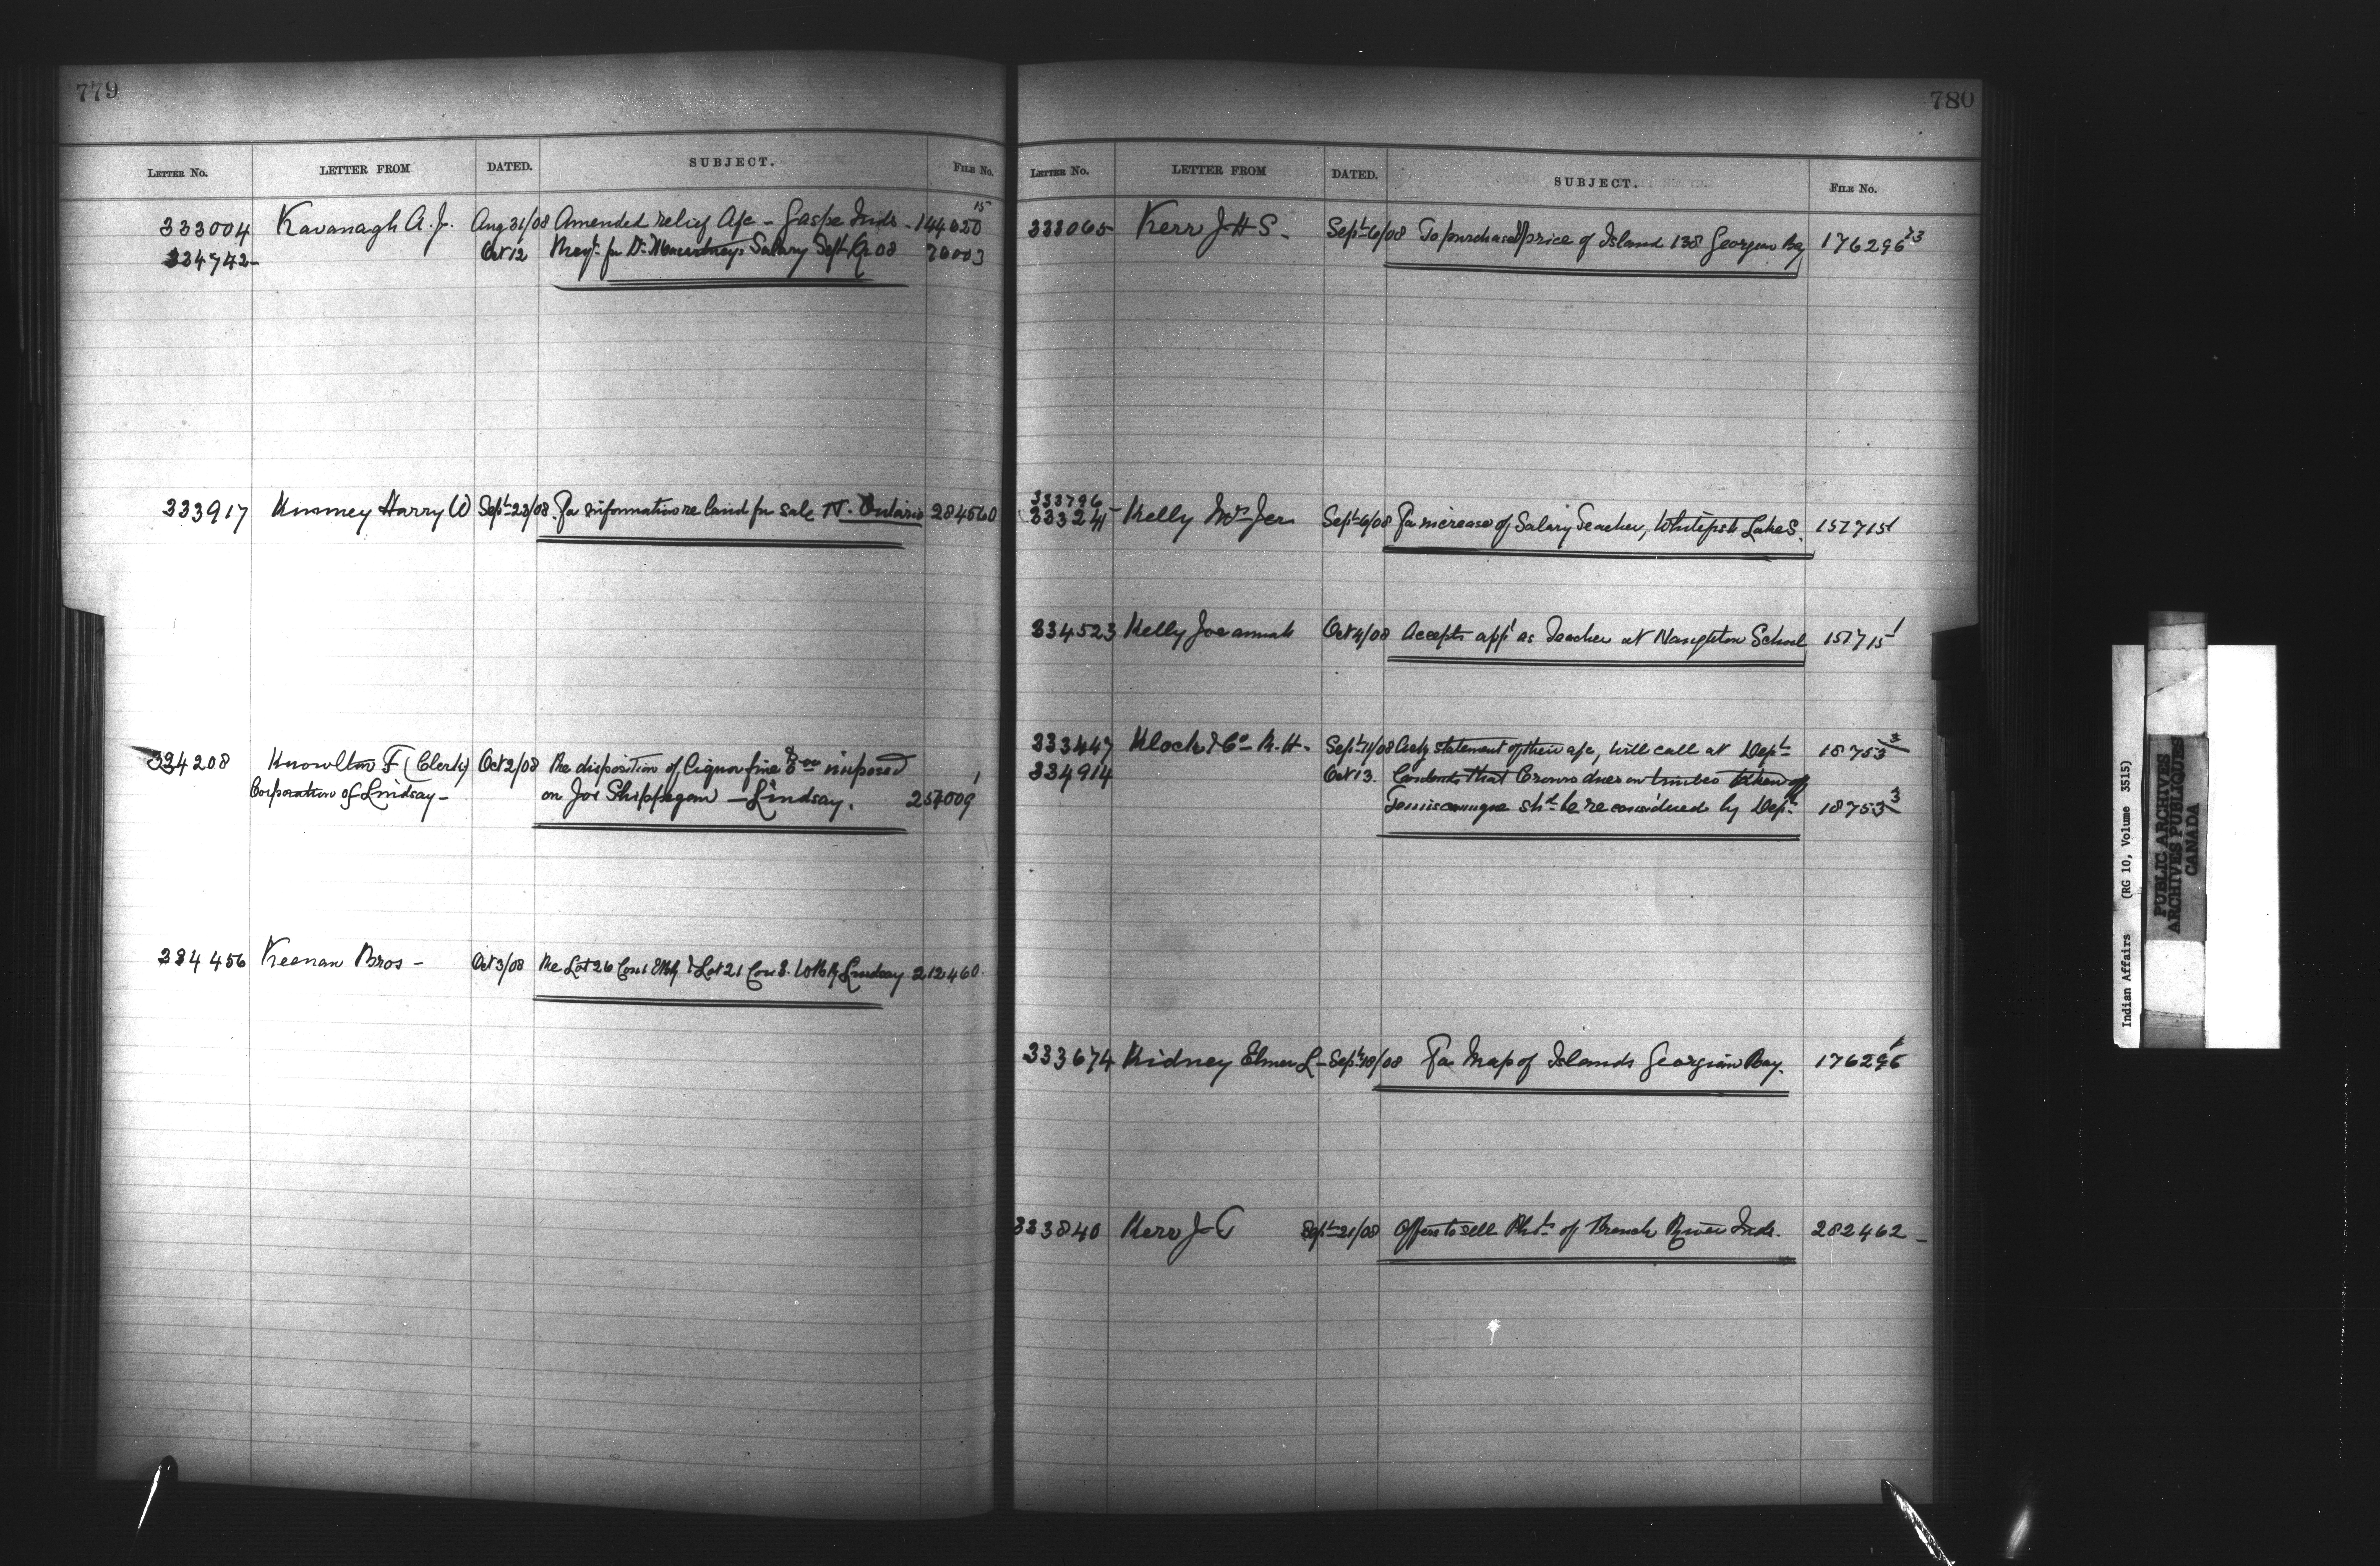 779
LETTER NO. LETTER FROM DATED. SUBJECT. FILE No.
333004 Kavanagh A. J. Aug 31/08 Amended relief A/c - Gaspe Inds. - 144650 15
334742 Oct 12 Salary Sept Qr 08 76003
333917 Kinney Harry W Sept 23/08 For information re land for sale N. Ontario 284560
334208 Knowlton F (Clerk) Oct 2/08 Re disposition of liquor fine imposed
Corporation of Lindsay - on Joe Shippegaw - Lindsay. 257009 1
334456 Keenan Bros - Oct 3/08 Re Lot 26 Con 1 & Lot 21 Con 3. Lindsay 212460.
780
LETTER NO. LETTER FROM DATED. SUBJECT. FILE No.
333065 Kerr J H S. Sept 6/08 To purchase price of Island 138 Georgian Bay 176296 23
333796
333241 Kelly Mrs Jer Sept 6/08 For increase of Salary Teacher, Whitefish Lake S. 157715 1
334523 Kelly Joeannah Oct 4/08 Accepts appt as Teacher at Naughton School 157715 1
333447 Klock & Co R. H. Sept 11/08 statement of their a/c, will call at Dept 18753 3
334914 Oct 13. Contends that Crown dues on timber taken off
Temiscamingue shd be reconsidered by Dept. 18753 3
333674 Kidney Elmer L - Sept 18/08 For Map of Islands Georgian Bay. 176296
333840 Kerr J T Sept 21/08 Offers to sell of French River Inds. 282462 -
Indian Affairs (RG 10, Volume 3515)
PUBLIC ARCHIVES
ARCHIVES PUBLIQUES
CANADA